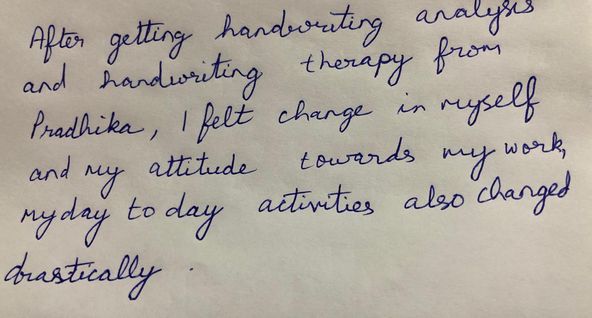 After getting handwriting analysis
and handwriting therapy from
Pradhika, I felt change in myself
and my attitude towards my work,
my day to day activities also changed
drastically.